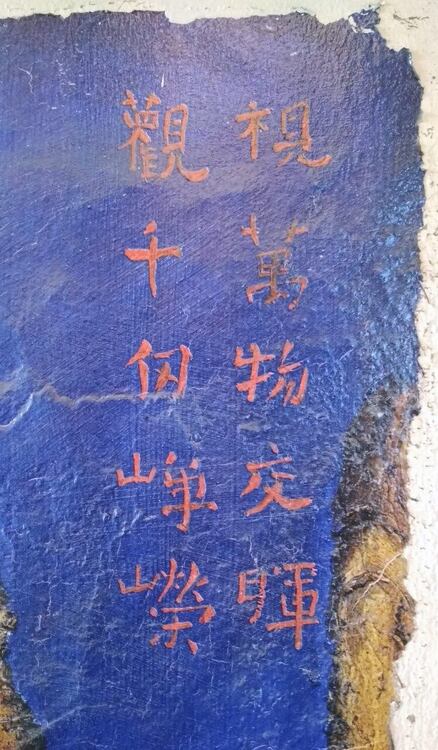 視萬物交暉
觀千仞崢嶸